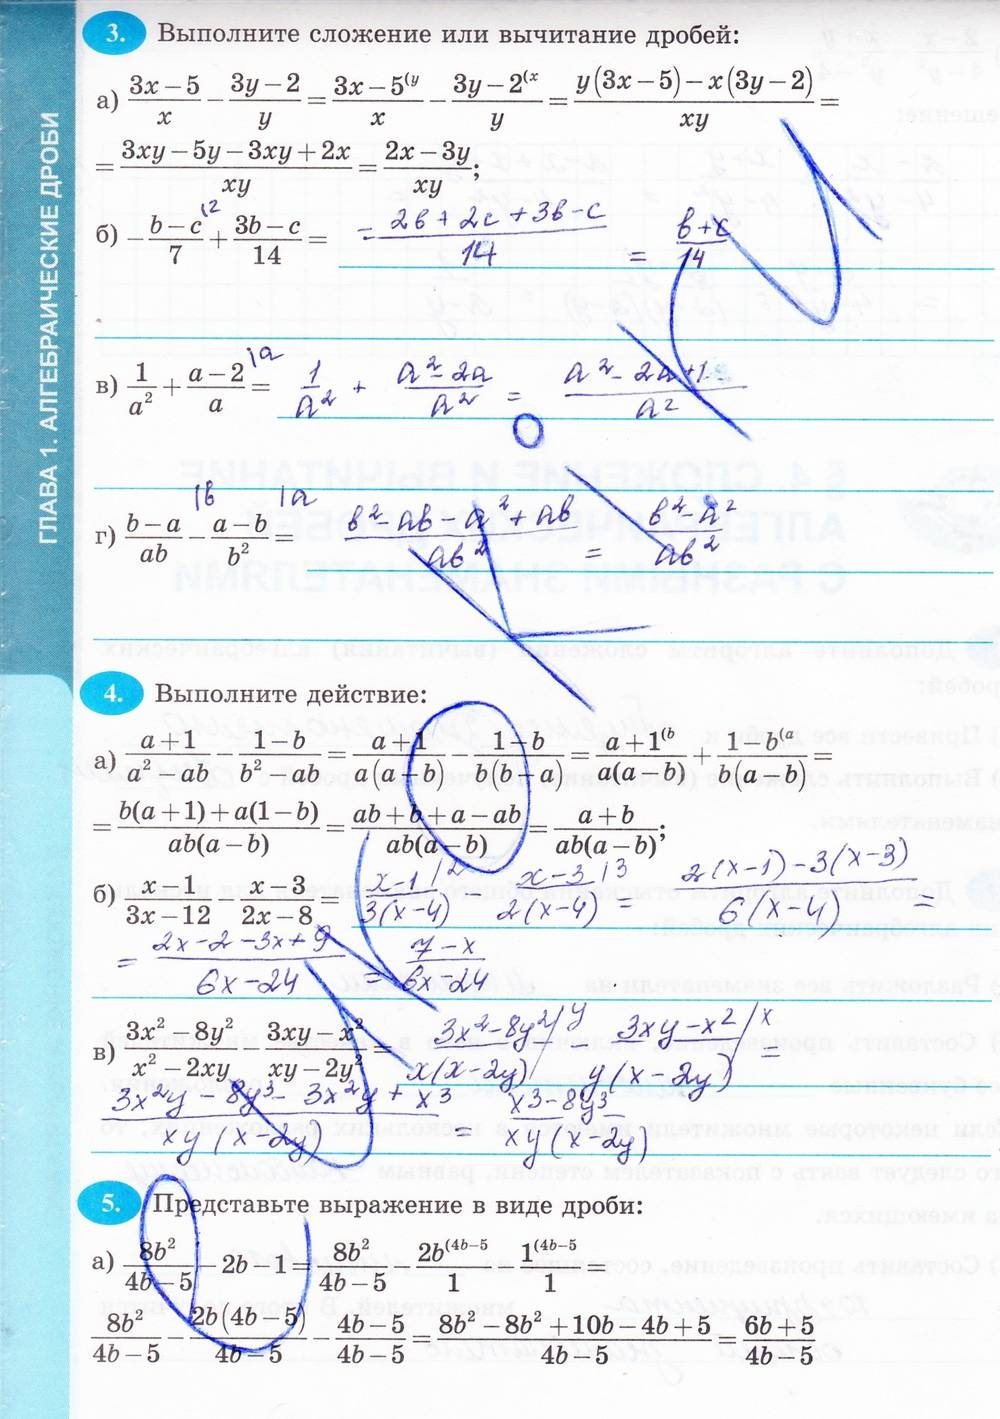 ГЛАВА 1. АЛГЕБРАИЧЕСКИЕ ДРОБИ
3. Выполните сложение или вычитание дробей:
а) (3x − 5)/x − (3y − 2)/y = (3x − 5^(y)/x − (3y − 2^(x)/y = (y(3x − 5) − x(3y − 2))/xy =
= (3xy − 5y − 3xy + 2x)/xy = (2x − 3y)/xy;
б) −(b − c)/7 |2 + (3b − c)/14 = = (−2b + 2c + 3b − c)/14 = (b + c)/14
в) 1/a² + (a − 2)/a |a = 1/a² + (a² − 2a)/a² = (a² − 2a + 1)/a²
г) (b − a)/ab |b − (a − b)/b² |a = (b² − ab − a² + ab)/ab² = (b² − a²)/ab²
4. Выполните действие:
а) (a + 1)/(a² − ab) − (1 − b)/(b² − ab) = (a + 1)/(a(a − b)) − (1 − b)/(b(b − a)) = (a + 1^(b)/(a(a − b)) + (1 − b^(a)/(b(a − b)) =
= (b(a + 1) + a(1 − b))/(ab(a − b)) = (ab + b + a − ab)/(ab(a − b)) = (a + b)/(ab(a − b));
б) (x − 1)/(3x − 12) − (x − 3)/(2x − 8) = (x − 1)/(3(x − 4)) |2 − (x − 3)/(2(x − 4)) |3 = (2(x − 1) − 3(x − 3))/(6(x − 4)) =
= (2x − 2 − 3x + 9)/(6x − 24) = (7 − x)/(6x − 24)
в) (3x² − 8y²)/(x² − 2xy) − (3xy − x²)/(xy − 2y²) = (3x² − 8y²)/(x(x − 2y)) |y − (3xy − x²)/(y(x − 2y)) |x =
(3x²y − 8y³ − 3x²y + x³)/(xy(x − 2y)) = (x³ − 8y³)/(xy(x − 2y))
5. Представьте выражение в виде дроби:
а) 8b²/(4b − 5) − 2b − 1 = 8b²/(4b − 5) − 2b^(4b−5)/1 − 1^(4b−5)/1 =
8b²/(4b − 5) − 2b(4b − 5)/(4b − 5) − (4b − 5)/(4b − 5) = (8b² − 8b² + 10b − 4b + 5)/(4b − 5) = (6b + 5)/(4b − 5)